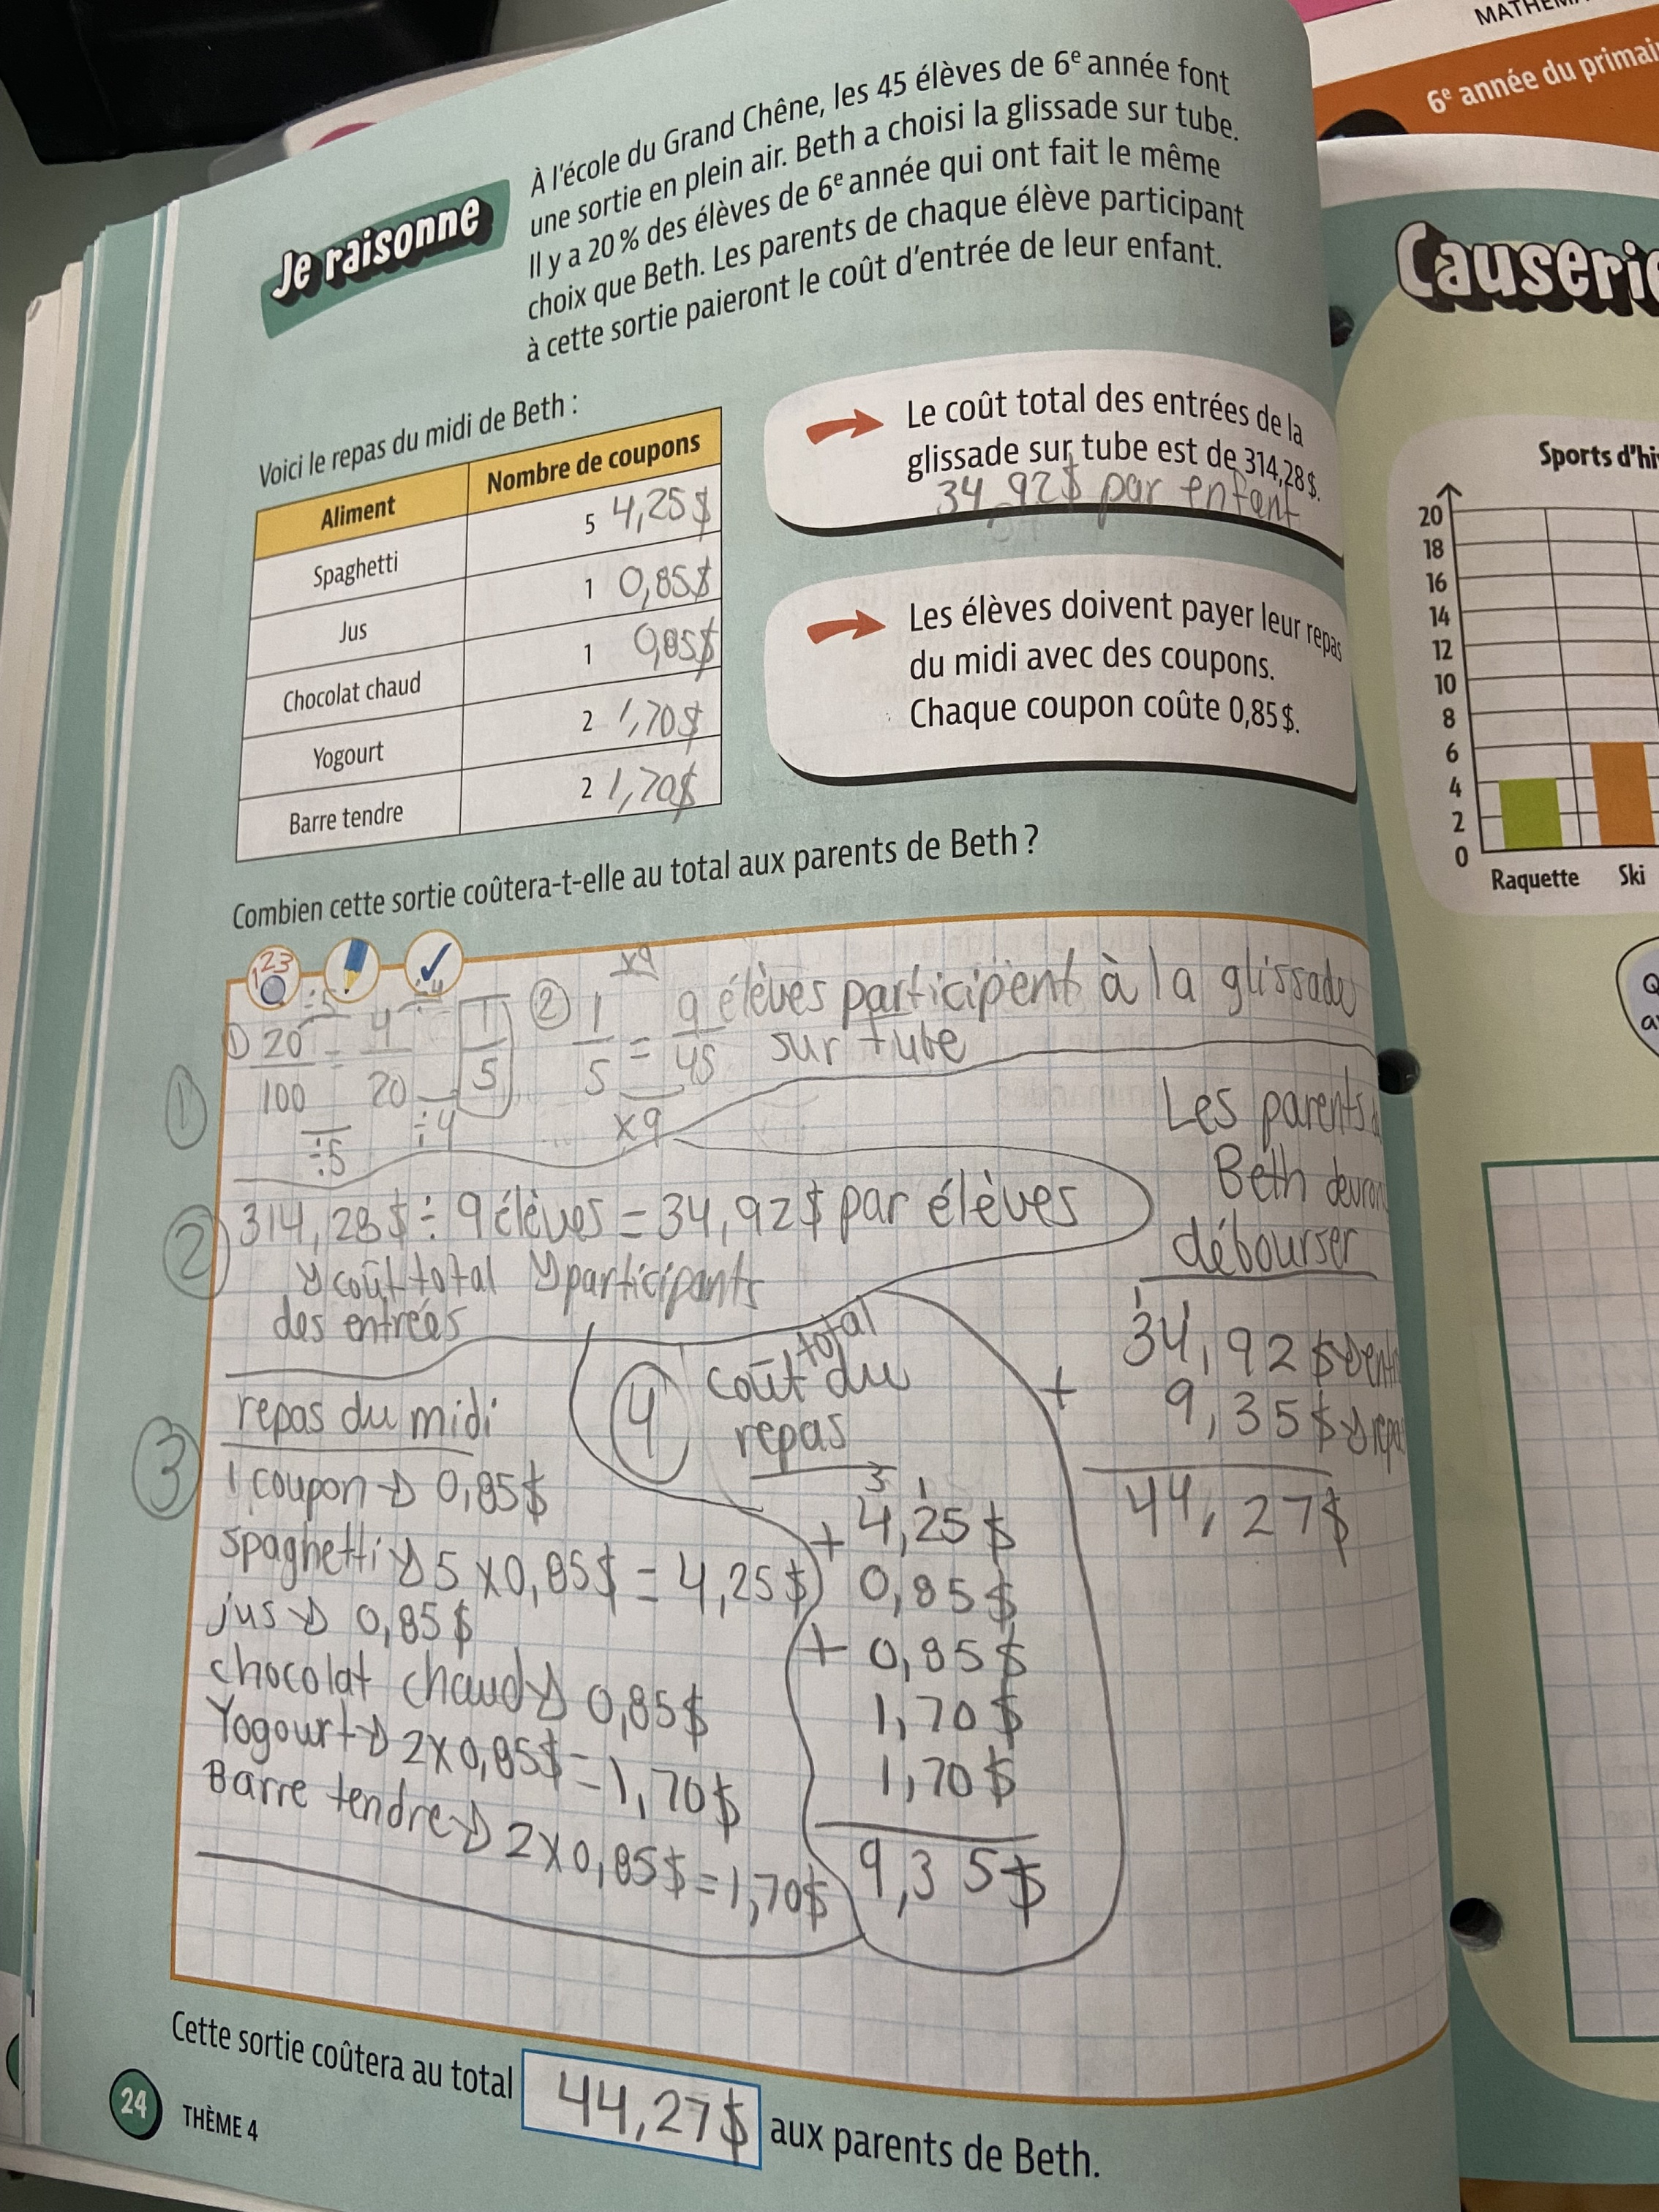 MATHÉM
6e année du primai
À l'école du Grand Chêne, les 45 élèves de 6e année font
une sortie en plein air. Beth a choisi la glissade sur tube.
Il y a 20 % des élèves de 6e année qui ont fait le même
choix que Beth. Les parents de chaque élève participant
à cette sortie paieront le coût d'entrée de leur enfant.
Je raisonne
Voici le repas du midi de Beth :
Aliment Nombre de coupons
Spaghetti 5 4,25 $
Jus 1 0,85 $
Chocolat chaud 1 0,85 $
Yogourt 2 1,70 $
Barre tendre 2 1,70 $
Le coût total des entrées de la
glissade sur tube est de 314,28 $.
34,92 $ par enfant
Les élèves doivent payer leur repas
du midi avec des coupons.
Chaque coupon coûte 0,85 $.
Combien cette sortie coûtera-t-elle au total aux parents de Beth ?
123
① ÷5 ÷4
20/100 = 4/20 = 1/5
÷5 ÷4
② x9
1/5 = 9/45
x9
9 élèves participent à la glissade
sur tube
1
2
314,28 $ ÷ 9 élèves = 34,92 $ par élèves
coût total participants
des entrées
3
repas du midi
1 coupon → 0,85 $
spaghetti → 5 x 0,85 $ = 4,25 $
jus → 0,85 $
chocolat chaud → 0,85 $
Yogourt → 2 x 0,85 $ = 1,70 $
Barre tendre → 2 x 0,85 $ = 1,70 $
4
coût total du
repas
3 1
+ 4,25 $
0,85 $
+ 0,85 $
1,70 $
1,70 $
9,35 $
Les parents
Beth devron
débourser
1 1
34,92 $ → ent
+ 9,35 $ → repa
44,27 $
Cette sortie coûtera au total 44,27 $ aux parents de Beth.
24 THÈME 4
Causerie
Sports d'hi
20
18
16
14
12
10
8
6
4
2
0
Raquette Ski
Q
a